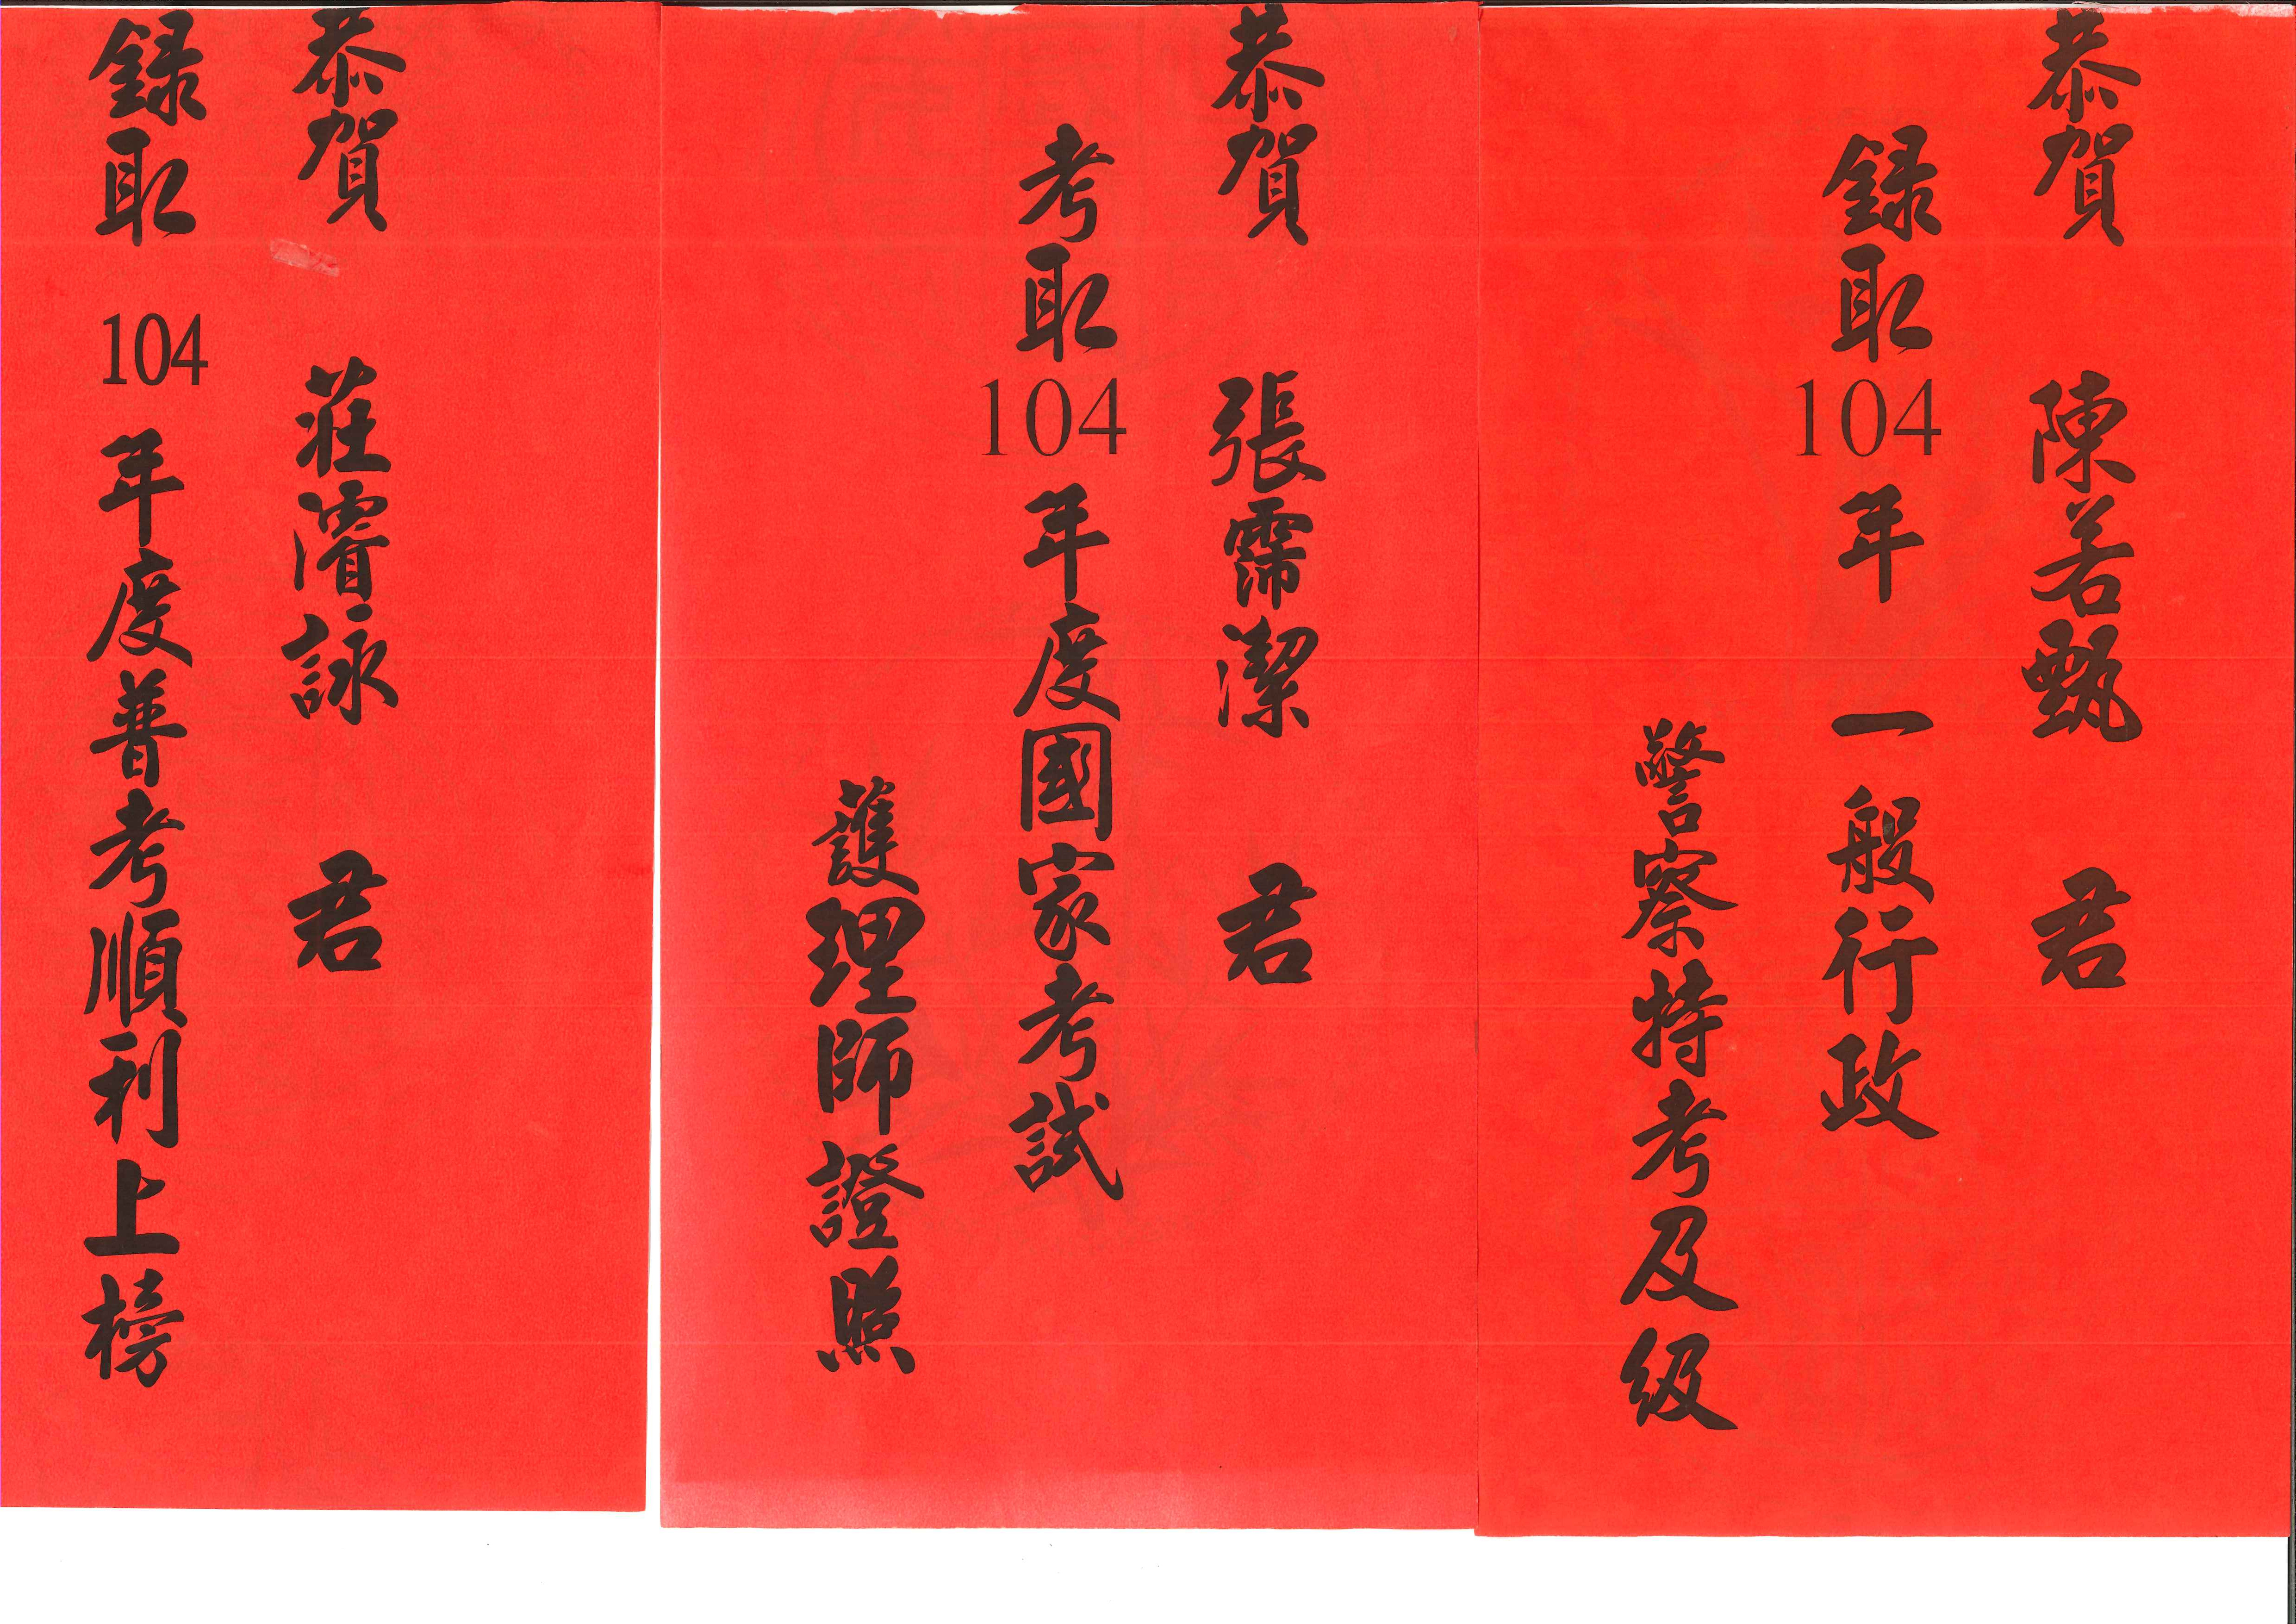 恭賀 陳若甄 君
錄取104年 一般行政
警察特考及級
恭賀 張霈潔 君
考取104年度國家考試
護理師證照
恭賀 莊濬詠 君
錄取 104 年度普考順利上榜